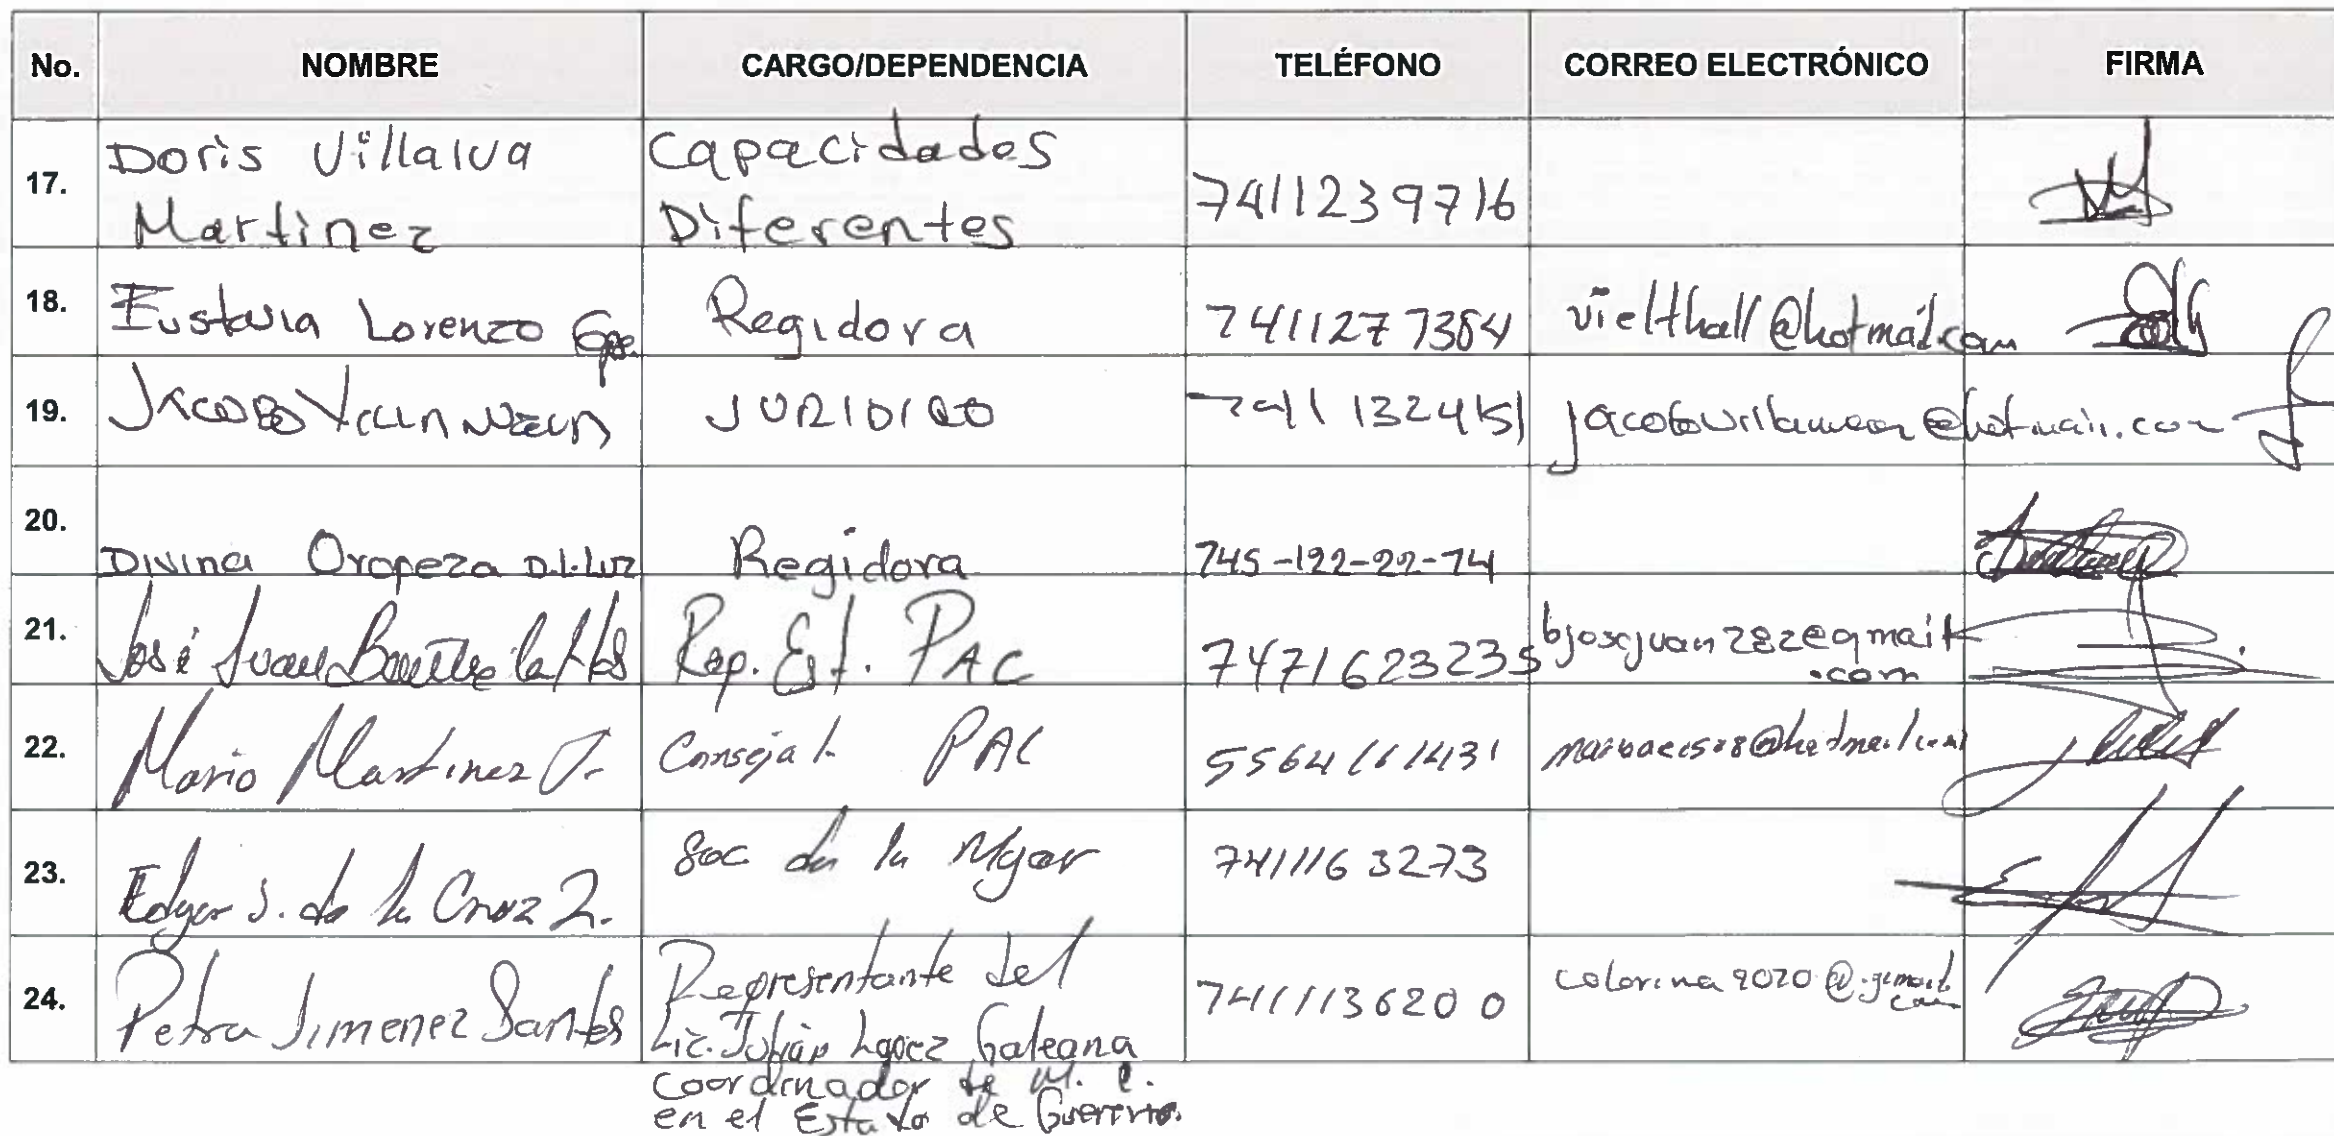 No. NOMBRE CARGO/DEPENDENCIA TELÉFONO CORREO ELECTRÓNICO FIRMA
17. Doris Villalva Martinez Capacidades Diferentes 7411239716
18. Eustavia Lorenzo Gpe. Regidora 7411277384 vielthall@hotmail.com
19. JACOBO JURIDICO 7411132451
20. Divina Oropeza D.l.Luz Regidora 745-122-22-74
21. José Juan Rep. Est. PAC 7471623235 bjosejuan282@gmail.com
22. Mario Martinez J. Consejal. PAC 5564111431
23. Edgar J. de la Cruz Z. Soc de la Mjer 7411163273
24. Petra Jimenez Santos Representante del
Lic. Julián López Galeana
Coordinador de M. C.
en el Estado de Guerrero. 7411136200 colorina2020@.gmail.com